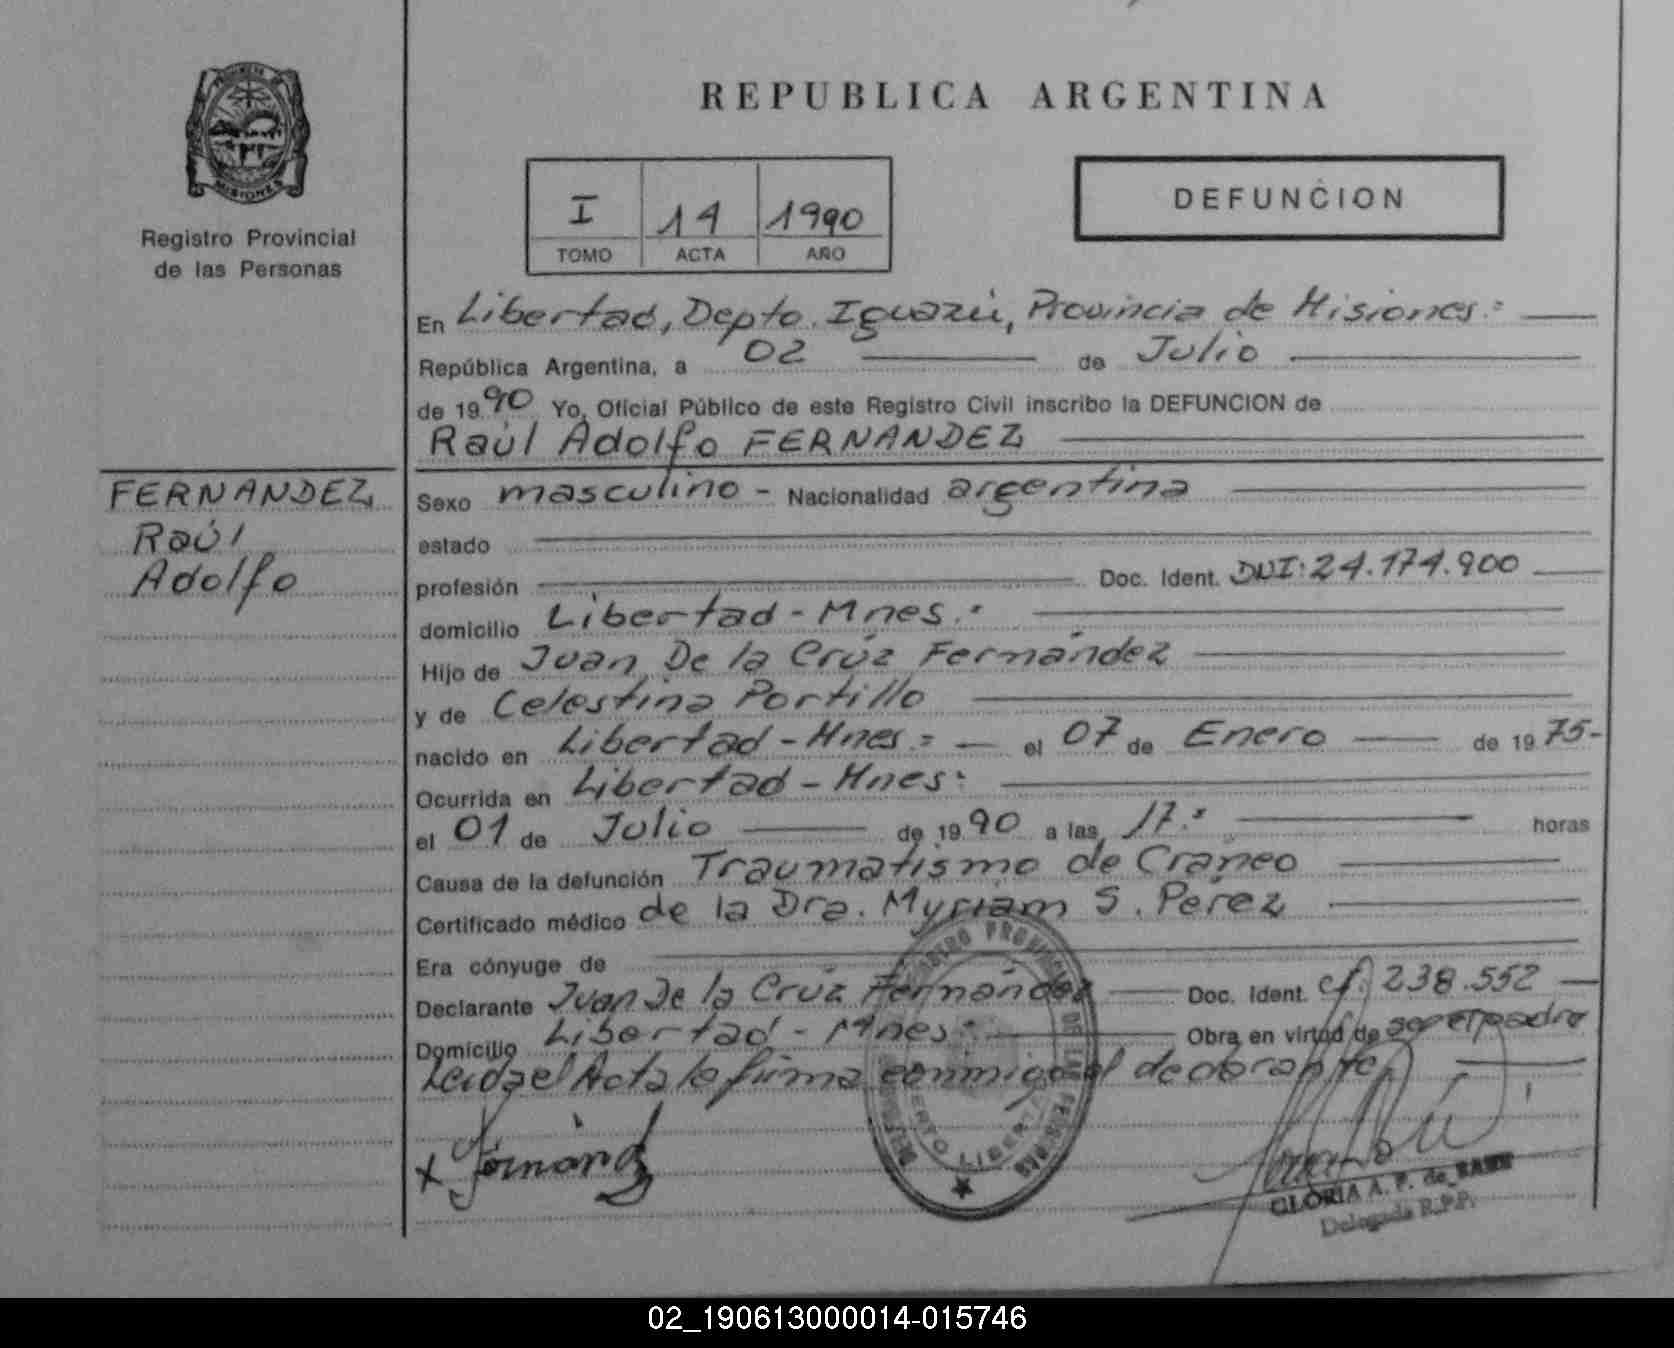 PROVINCIA DE
MISIONES
Registro Provincial
de las Personas
REPUBLICA ARGENTINA
I 14 1990
TOMO ACTA AÑO
DEFUNCION
En Libertad, Depto. Iguazú, Provincia de Misiones.=
República Argentina, a 02 de Julio
de 1990 Yo, Oficial Público de este Registro Civil inscribo la DEFUNCION de
Raúl Adolfo FERNANDEZ
FERNANDEZ
Raúl
Adolfo
Sexo masculino - Nacionalidad argentina
estado
profesión Doc. Ident. DNI: 24.174.900
domicilio Libertad - Mnes.=
Hijo de Juan De la Crúz Fernández
y de Celestina Portillo
nacido en Libertad - Mnes.= el 07 de Enero de 1975-
Ocurrida en Libertad - Mnes.
el 01 de Julio de 1990 a las 17.= horas
Causa de la defunción Traumatismo de Craneo
Certificado médico de la Dra. Myriam S. Pérez
Era cónyuge de
Declarante Juan De la Crúz Fernández Doc. Ident. 238.552
Domicilio Libertad - Mnes.= Obra en virtud de ser el padre
Leida el Acta la firma conmigo el declarante
x Fernández
REGISTRO PROVINCIAL DE LAS PERSONAS
MISIONES
PUERTO LIBERTAD
GLORIA A. F. de
Delegada R.P.P.
02_190613000014-015746